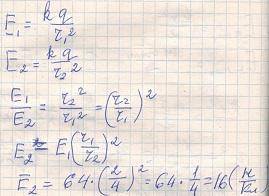 E₁ = kq/r₁²
E₂ = kq/r₂²
E₁/E₂ = r₂²/r₁² = (r₂/r₁)²
E₂ = E₁(r₁/r₂)²
E₂ = 64·(2/4)² = 64·1/4 = 16(н/Кл